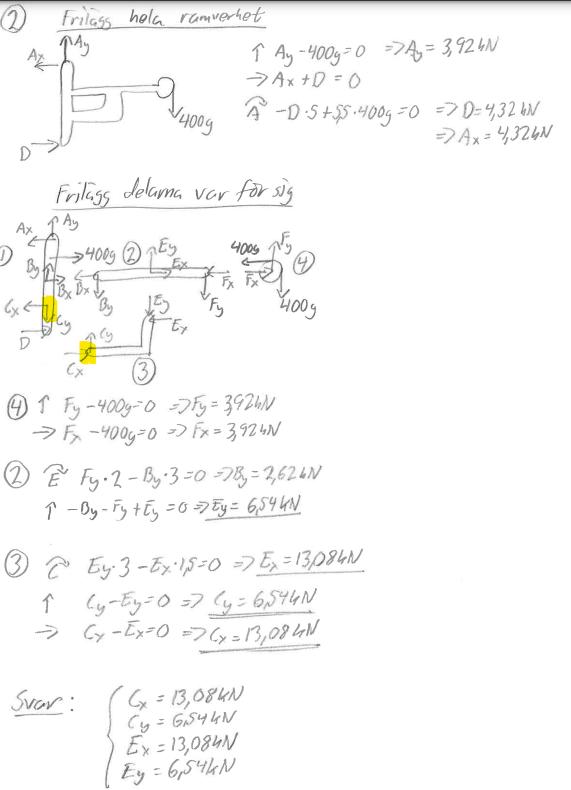 ② Frilägg hela ramverket
Ay
Ax
400g
D
↑ Ay - 400g = 0 => Ay = 3,92 kN
-> Ax + D = 0
A -D·5 + 5,5·400g = 0 => D = 4,32 kN
=> Ax = 4,32 kN
Frilägg delarna var för sig
① Ax Ay 400g By Bx Cx Cy D
② Ey Ex Bx By Fx Fy
④ 400g Fy Fx 400g
③ Ey Ex Cy Cx
④ ↑ Fy - 400g = 0 => Fy = 3,92 kN
-> Fx - 400g = 0 => Fx = 3,92 kN
② E Fy·2 - By·3 = 0 => By = 2,62 kN
↑ -By - Fy + Ey = 0 => Ey = 6,54 kN
③ C Ey·3 - Ex·1,5 = 0 => Ex = 13,08 kN
↑ Cy - Ey = 0 => Cy = 6,54 kN
-> Cx - Ex = 0 => Cx = 13,08 kN
Svar:
Cx = 13,08 kN
Cy = 6,54 kN
Ex = 13,08 kN
Ey = 6,54 kN